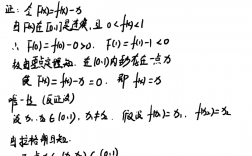 证: 令 F(x)=f(x)-x
由 F(x)在[0,1]连续, 且 0<f(x)<1
∴ F(0)=f(0)-0>0. F(1)=f(1)-1<0
故由零点定理知. 在(0,1)内
使 F(x)=f(x)-x=0. 即 f(x)=x
唯一性 (反证法)
设 x₁.x₂∈(0,1), x₁≠x₂. 假设 f(x₁)=x₁, f(x₂)=x₂
由拉格朗日知.